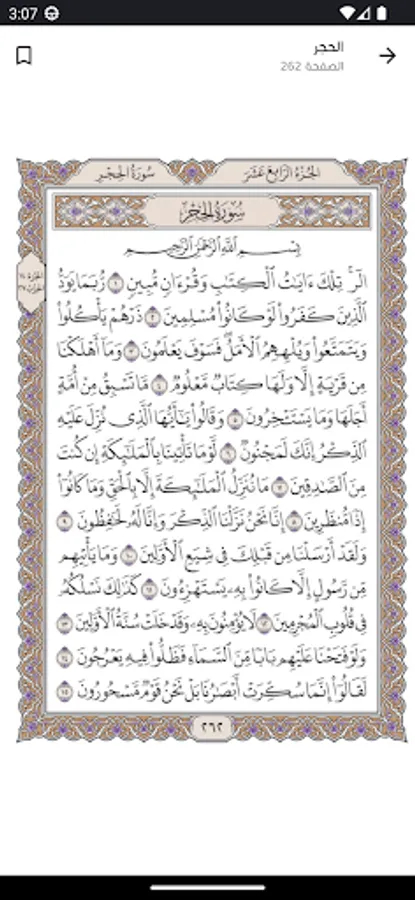 3:07
الحجر
الصفحة 262
الجزء الرابع عشر
سورة الحجر
سُورَةُ الحِجْرِ
بِسْمِ اللَّهِ الرَّحْمَٰنِ الرَّحِيمِ
الٓرۚ تِلْكَ ءَايَٰتُ ٱلْكِتَٰبِ وَقُرْءَانٍ مُّبِينٍ ١ رُّبَمَا يَوَدُّ
ٱلَّذِينَ كَفَرُوا۟ لَوْ كَانُوا۟ مُسْلِمِينَ ٢ ذَرْهُمْ يَأْكُلُوا۟
وَيَتَمَتَّعُوا۟ وَيُلْهِهِمُ ٱلْأَمَلُۖ فَسَوْفَ يَعْلَمُونَ ٣ وَمَآ أَهْلَكْنَا
مِن قَرْيَةٍ إِلَّا وَلَهَا كِتَابٌ مَّعْلُومٌ ٤ مَّا تَسْبِقُ مِنْ أُمَّةٍ
أَجَلَهَا وَمَا يَسْتَـْٔخِرُونَ ٥ وَقَالُوا۟ يَٰٓأَيُّهَا ٱلَّذِى نُزِّلَ عَلَيْهِ
ٱلذِّكْرُ إِنَّكَ لَمَجْنُونٌ ٦ لَّوْ مَا تَأْتِينَا بِٱلْمَلَٰٓئِكَةِ إِن كُنتَ
مِنَ ٱلصَّٰدِقِينَ ٧ مَا نُنَزِّلُ ٱلْمَلَٰٓئِكَةَ إِلَّا بِٱلْحَقِّ وَمَا كَانُوٓا۟
إِذًا مُّنظَرِينَ ٨ إِنَّا نَحْنُ نَزَّلْنَا ٱلذِّكْرَ وَإِنَّا لَهُۥ لَحَٰفِظُونَ ٩
وَلَقَدْ أَرْسَلْنَا مِن قَبْلِكَ فِى شِيَعِ ٱلْأَوَّلِينَ ١٠ وَمَا يَأْتِيهِم
مِّن رَّسُولٍ إِلَّا كَانُوا۟ بِهِۦ يَسْتَهْزِءُونَ ١١ كَذَٰلِكَ نَسْلُكُهُۥ
فِى قُلُوبِ ٱلْمُجْرِمِينَ ١٢ لَا يُؤْمِنُونَ بِهِۦ وَقَدْ خَلَتْ سُنَّةُ ٱلْأَوَّلِينَ ١٣
وَلَوْ فَتَحْنَا عَلَيْهِم بَابًا مِّنَ ٱلسَّمَآءِ فَظَلُّوا۟ فِيهِ يَعْرُجُونَ ١٤
لَقَالُوٓا۟ إِنَّمَا سُكِّرَتْ أَبْصَٰرُنَا بَلْ نَحْنُ قَوْمٌ مَّسْحُورُونَ ١٥
٢٦٢